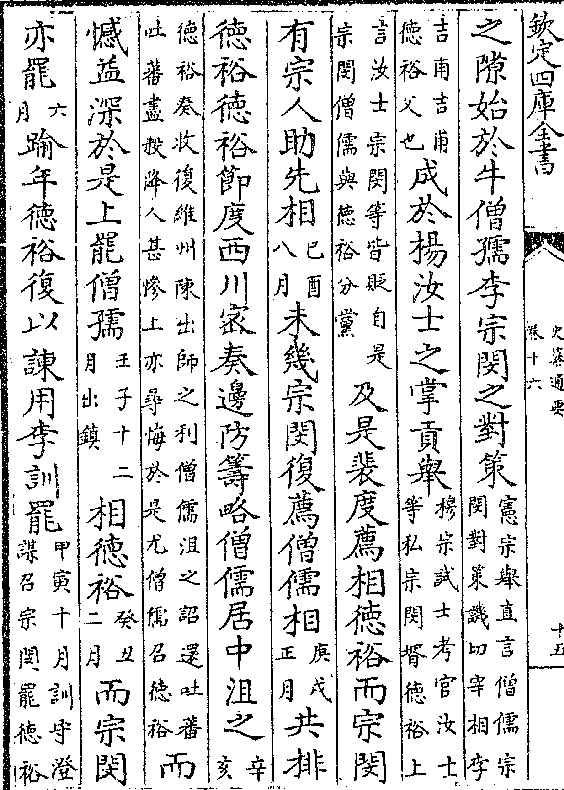 欽定四庫全書
史纂通要
卷十六
十五
之隙始於牛僧孺李宗閔之對策
憲宗舉直言僧儒宗
閔對策譏切宰相李
吉甫吉甫
德裕父也
成於揚汝士之掌貢舉
穆宗試士考官汝士
等私宗閔壻德裕上
言汝士宗閔等皆貶自是
宗閔僧儒與德裕分黨
及是裴度薦相德裕而宗閔
有宗人助先相
己酉
八月
未幾宗閔復薦僧儒相
庚戌
正月
共排
德裕德裕節度西川密奏邊防籌略僧儒居中沮之
辛
亥
德裕奏收復維州陳出師之利僧儒沮之詔還吐蕃
吐蕃盡殺降人甚慘上亦尋悔於是尤僧儒召德裕
而
憾益深於是上罷僧孺
壬子十二
月出鎮
相德裕
癸丑
二月
而宗閔
亦罷
六
月
踰年德裕復以諫用李訓罷
甲寅十月訓守澄
謀召宗閔罷德裕